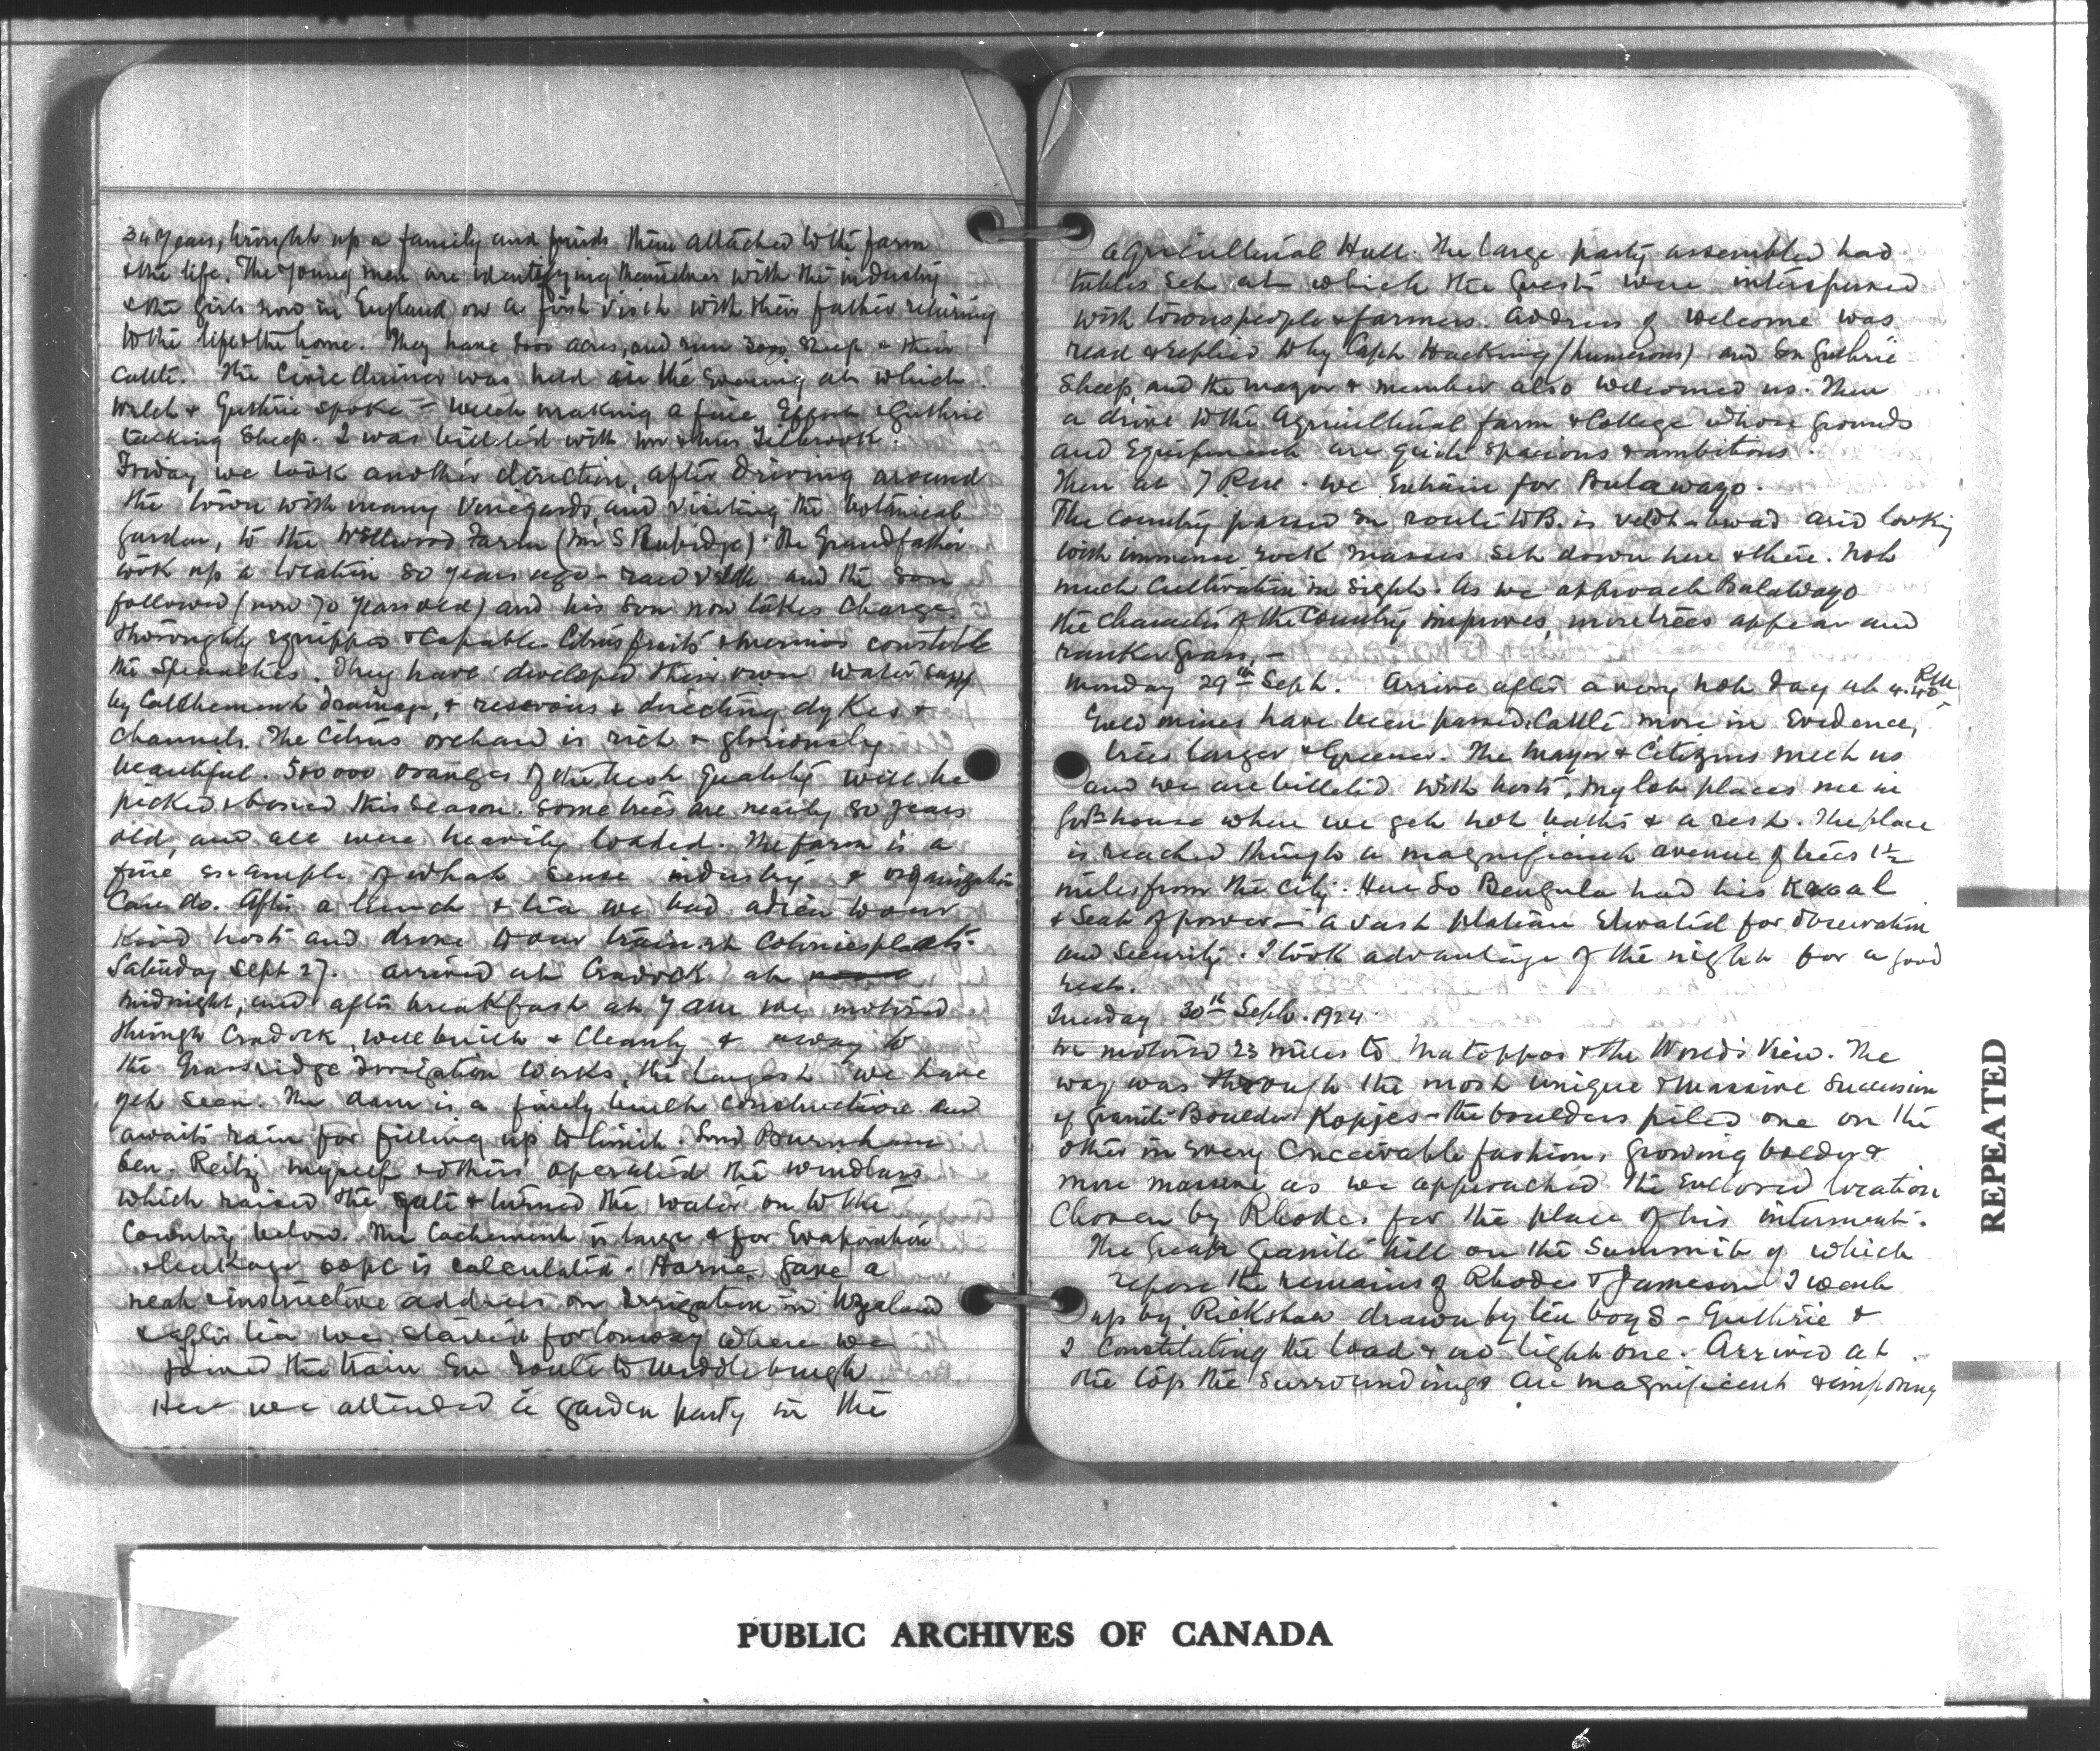 34 years, brought up a family and finds them attached to the farm
& the life. The young men are identifying themselves with the industry
& the girls now in England on a first visit with their father returning
to the life & the home. They have 8000 acres, and run 3000 sheep & their
cattle. The Civic dinner was held in the evening at which
Welch & Guthrie spoke – Welch making a fine effort & Guthrie
talking Sheep. I was billeted with Mr & Mrs Tilbrook.
Friday we took another direction, after driving around
the town with many Vineyards, and visiting the botanical
garden, to the Wellwood Farm (Mr S Rubidge). The Grandfather
took up a location 80 years ago – raw veldt and the son
followed (now 70 years old) and his son now takes charge.
Thoroughly equipped & capable. Citrus fruits & merinos constitute
the specialties. They have developed their own water supply
by catchement drainage, & resevoirs & directing dykes &
channels. The Citrus orchard is rich & gloriously
beautiful. 500000 oranges of the best quality will be
picked & boxed this season. Some trees are nearly 80 years
old, and all were heavily loaded. The farm is a
fine example of what sense industry & organization
can do. After a lunch & tea we bad adieu to our
kind hosts and drove to our train at Coloniesplaats.
Saturday Sept 27. arrived at Cradock at
midnight, and after breakfast at 7 am we motored
through Cradock, well built & cleanly & away to
the Grassridge Irrigation works, the largest we have
yet seen. The dam is a finely built construction and
awaits rain for filling up to limit. Lord Burnham
Gen. Reitz myself & others operated the windlass
which raised the gate & turned the water on to the
Country below. The Cachement is large & for Evaporation
& leakage 60pc is calculated. Horne gave a
neat & instructive address on Irrigation in N Zealand
& after tea we started for Conway where we
joined the train En route to Middleburgh
Here we attended a garden party in the
Agricultural Hall. The large party assembled had
tables set at which the guests were interspersed
with townspeople & farmers. Address of welcome was
read & replied to by Capt Hacking (humerous) and Sn Guthrie
Sheep, and the mayor & member also welcomed us. Then
a drive to the Agricultural farm & College whose grounds
and Equipment are quite spacious & ambitious.
Then at 7 P.m. we entrain for Bulawayo.
The Country passed en route to B. is veldt – broad arid looking
with immense rock masses set down here & there. Not
much Cultivation in sight. As we approach Bulawayo
the character of the Country improves, more trees appear and
ranker grass. –
Monday 29th Sept. Arrive after a very hot day at 4.40 P.m
Gold mines have been passed. Cattle more in Evidence,
trees larger & Greener. The Mayor & Citizens meet us
and we are billeted with hosts, my lot places me in
Govt house where we get hot baths & a rest. The place
is reached through a magnificent avenue of trees 1½
miles from the city. Here Lo Bengula had his Kraal
& Seat of power – a vast plateau elevated for observation
and Security. I took advantage of the night for a good
rest.
Tuesday 30th Sept. 1924.
We motored 23 miles to Matoppos & the World's View. The
way was through the most unique & massive Succession
of granite Boulder Kopjes – the boulders piled one on the
other in every Conceivable fashion, growing bolder &
more massive as we approached the Enclosed location
Chosen by Rhodes for the place of his interment.
The Great Granite hill on the Summit of which
repose the remains of Rhodes & Jameson I went
up by Rickshaw drawn by ten boys – Guthrie &
I Constituting the load & no light one. Arrived at
the top the surroundings are magnificent & imposing
REPEATED
PUBLIC ARCHIVES OF CANADA